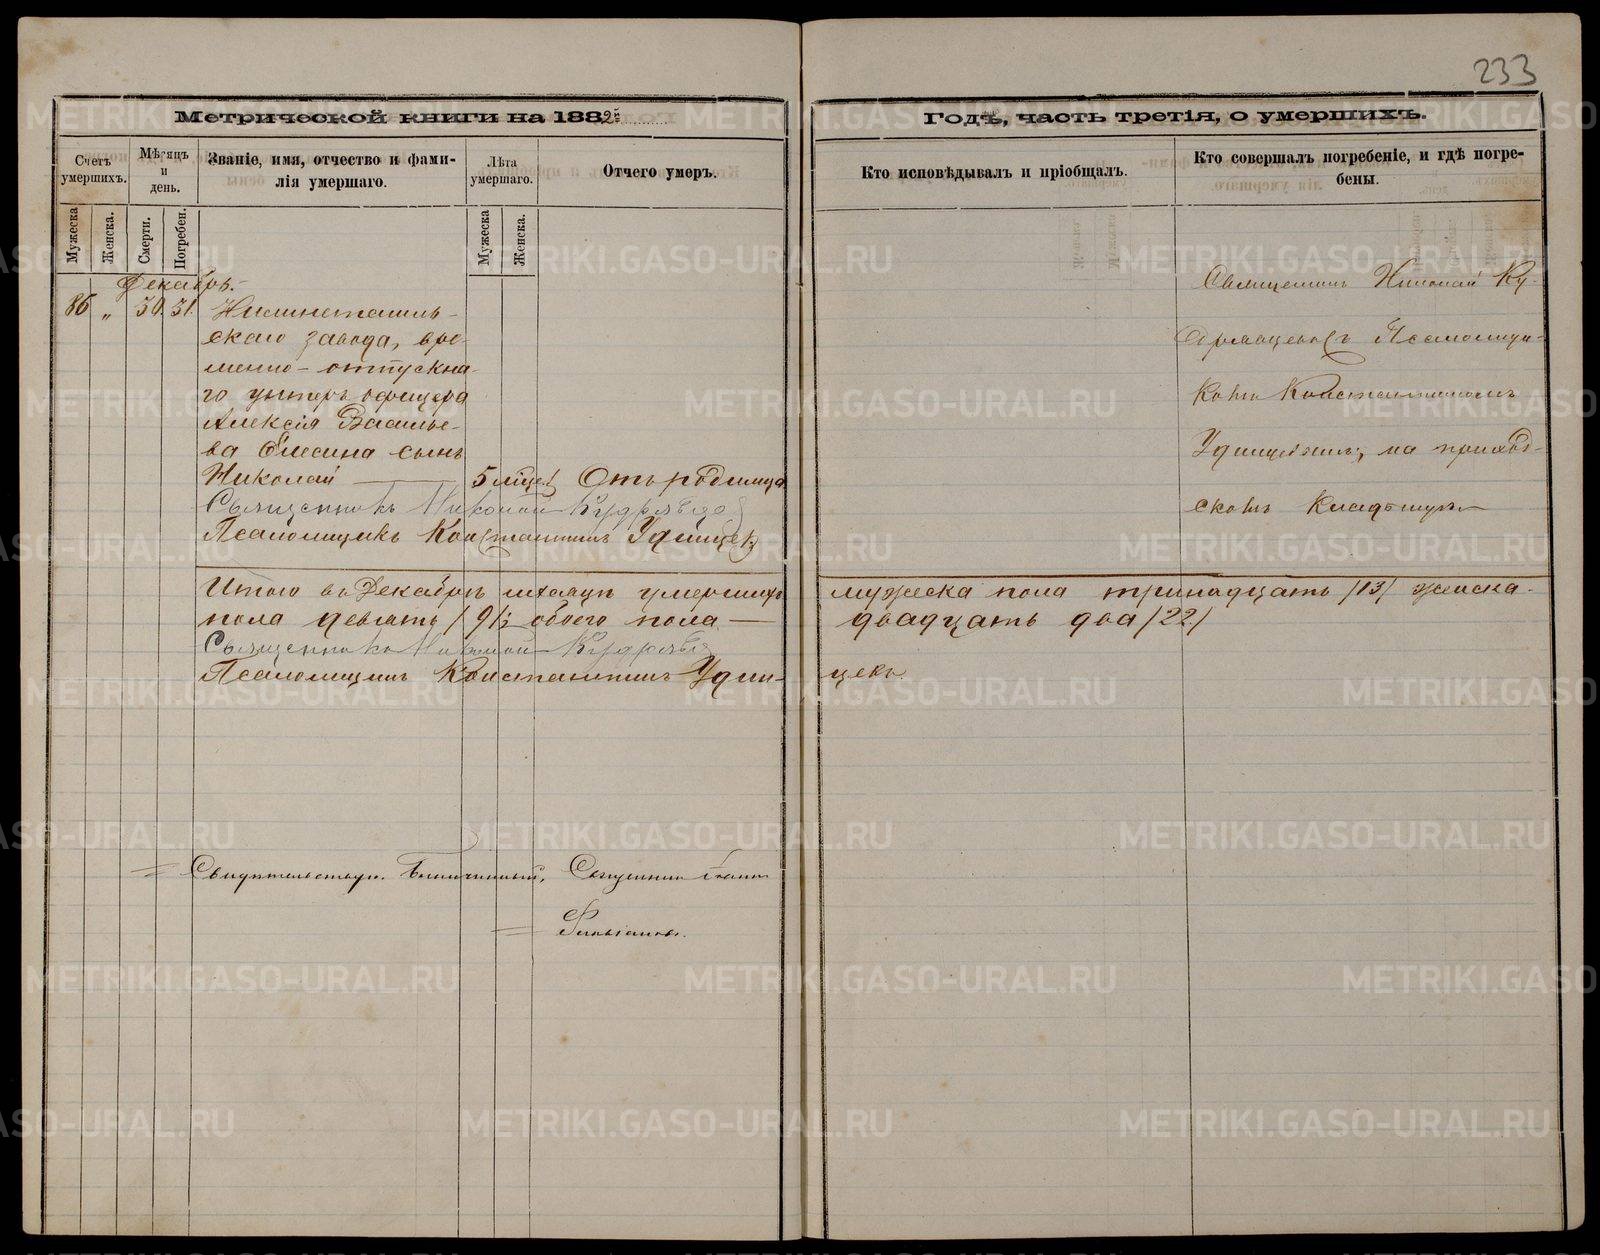 233
Метрической книги на 1882й
Годъ, часть третія, о умершихъ.
Счетъ умершихъ.
Мѣсяцъ и день.
Званіе, имя, отчество и фамилія умершаго.
Лѣта умершаго.
Отчего умеръ.
Кто исповѣдывалъ и пріобщалъ.
Кто совершалъ погребеніе, и гдѣ погребены.
Мужеска
Женска.
Смерти.
Погребен.
Мужеска
Женска.
Декабрь.
86 " 30. 31. Нижнетагиль-
скаго завода, вре-
менно-отпускна-
го унтеръ офицера
Алексія Василье-
ва сынъ
Николай 5 Отъ родимца
Священникъ Николай Кудрявцевъ
Псаломщикъ Константинъ Удинцевъ
Священникъ Николай Ку-
дрявцевъ съ Псаломщи-
комъ Константиномъ
Удинцевымъ, на приход-
скомъ кладбищѣ
Итого въ Декабрѣ мѣсяцѣ умершихъ мужеска пола тринадцать /13/ женска
пола девять /9/ обоего пола двадцать два /22/
Священникъ Николай Кудрявцевъ
Псаломщикъ Константинъ Удин-
цевъ.
Священникъ Іоаннъ
METRIKI.GASO-URAL.RU